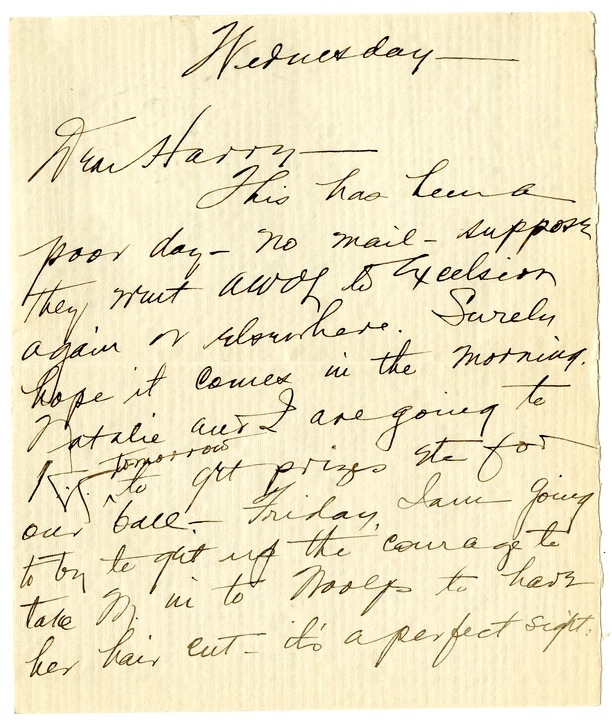 Wednesday—
Dear Harry—
This has been a
poor day— no mail— suppose
they went AWOL to Excelsior
again or elsewhere. Surely
hope it comes in the morning.
Natalie and I are going to
K.C. tomorrow to get prizes etc for
our ball.— Friday, I am going
to try to get up the courage to
take M. in to Woolfs to have
her hair cut— it's a perfect sight.